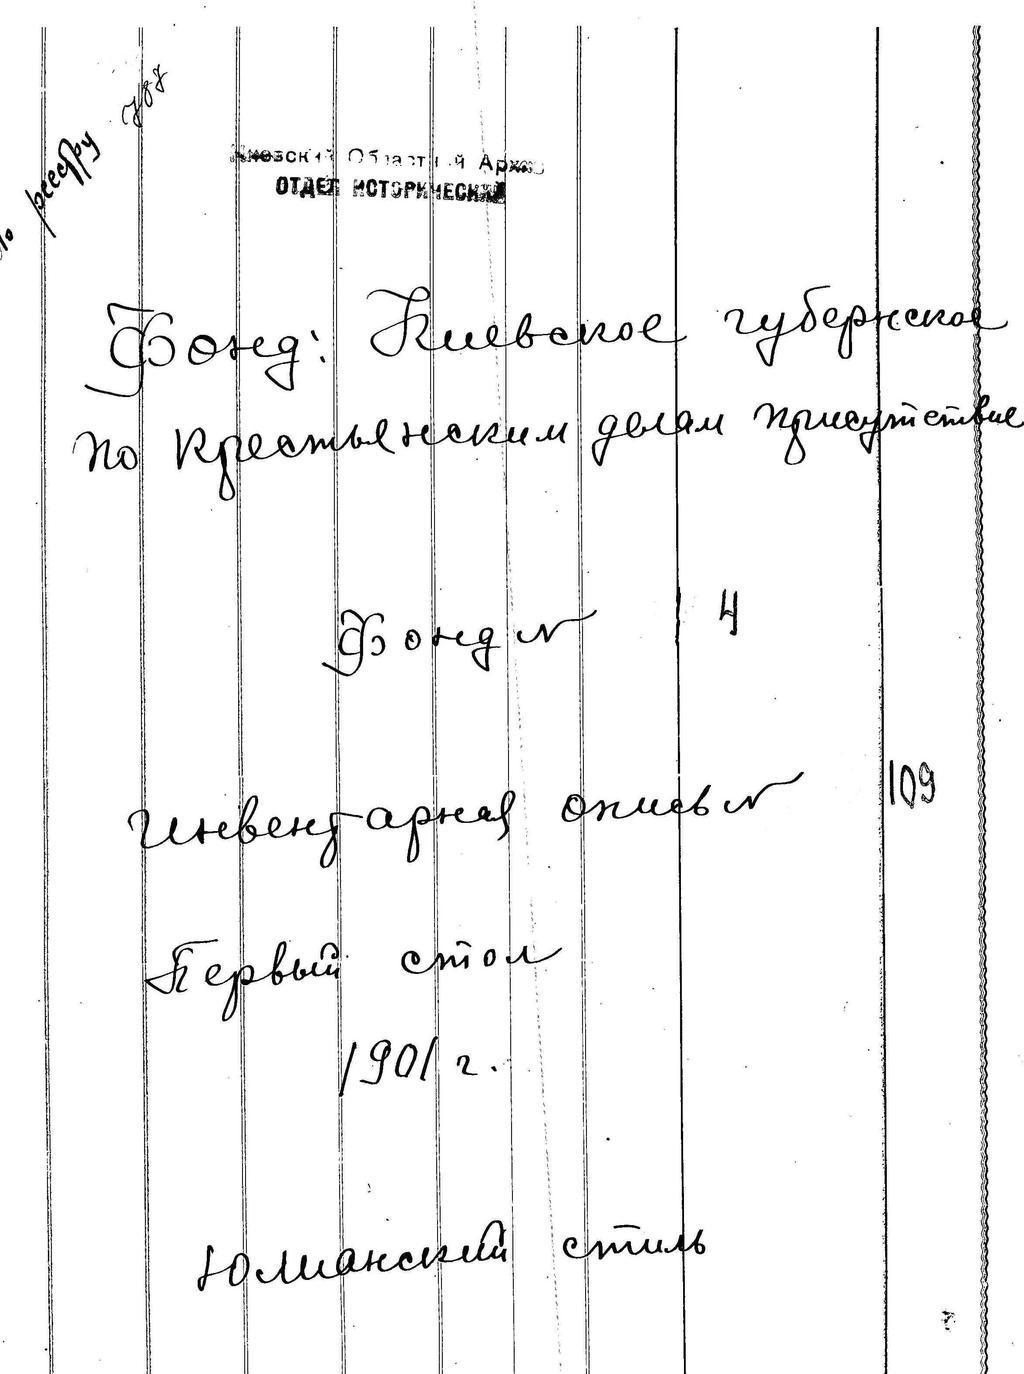 По реестру 787
Киевский Областной Архив
ОТДЕЛ ИСТОРИЧЕСКИЙ
Фонд: Киевское губернское
по крестьянским делам присутствие
Фонд № 4
Инвентарная опись № 109
Первый стол
1901 г.
Юлианский стиль